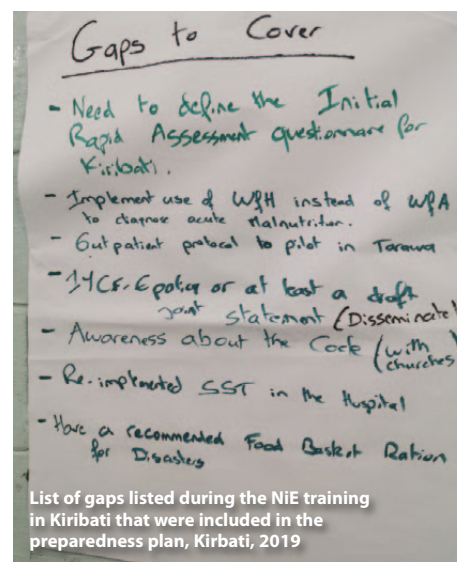 Gaps to Cover
- Need to define the Initial
Rapid Assessment questionnare for
Kiribati.
- Implement use of WfH instead of WfA
to diagnose acute Malnutrition.
- Outpatient protocol to pilot in Tarawa
- IYCF-E policy or at least a draft
joint statement (Disseminate)
- Awareness about the Code (with
churches)
- Re-implemented SST in the Hospital
- Have a recommended Food Basket Ration
for Disasters
List of gaps listed during the NiE training
in Kiribati that were included in the
preparedness plan, Kirbati, 2019